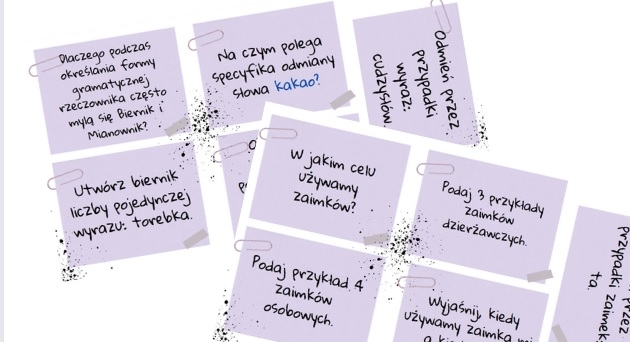 Dlaczego podczas
określania formy
gramatycznej
rzeczownika często
mylą się Biernik i
Mianownik?
Na czym polega
specyfika odmiany
słowa kakao?
Odmień przez
przypadki
wyraz:
cudzysłów
Utwórz biernik
liczby pojedynczej
wyrazu: torebka.
W jakim celu
używamy
zaimków?
Podaj 3 przykłady
zaimków
dzierżawczych.
Podaj przykład 4
zaimków
osobowych.
Wyjaśnij, kiedy
używamy zaimka
przez
przypadki zaimek:
ta.